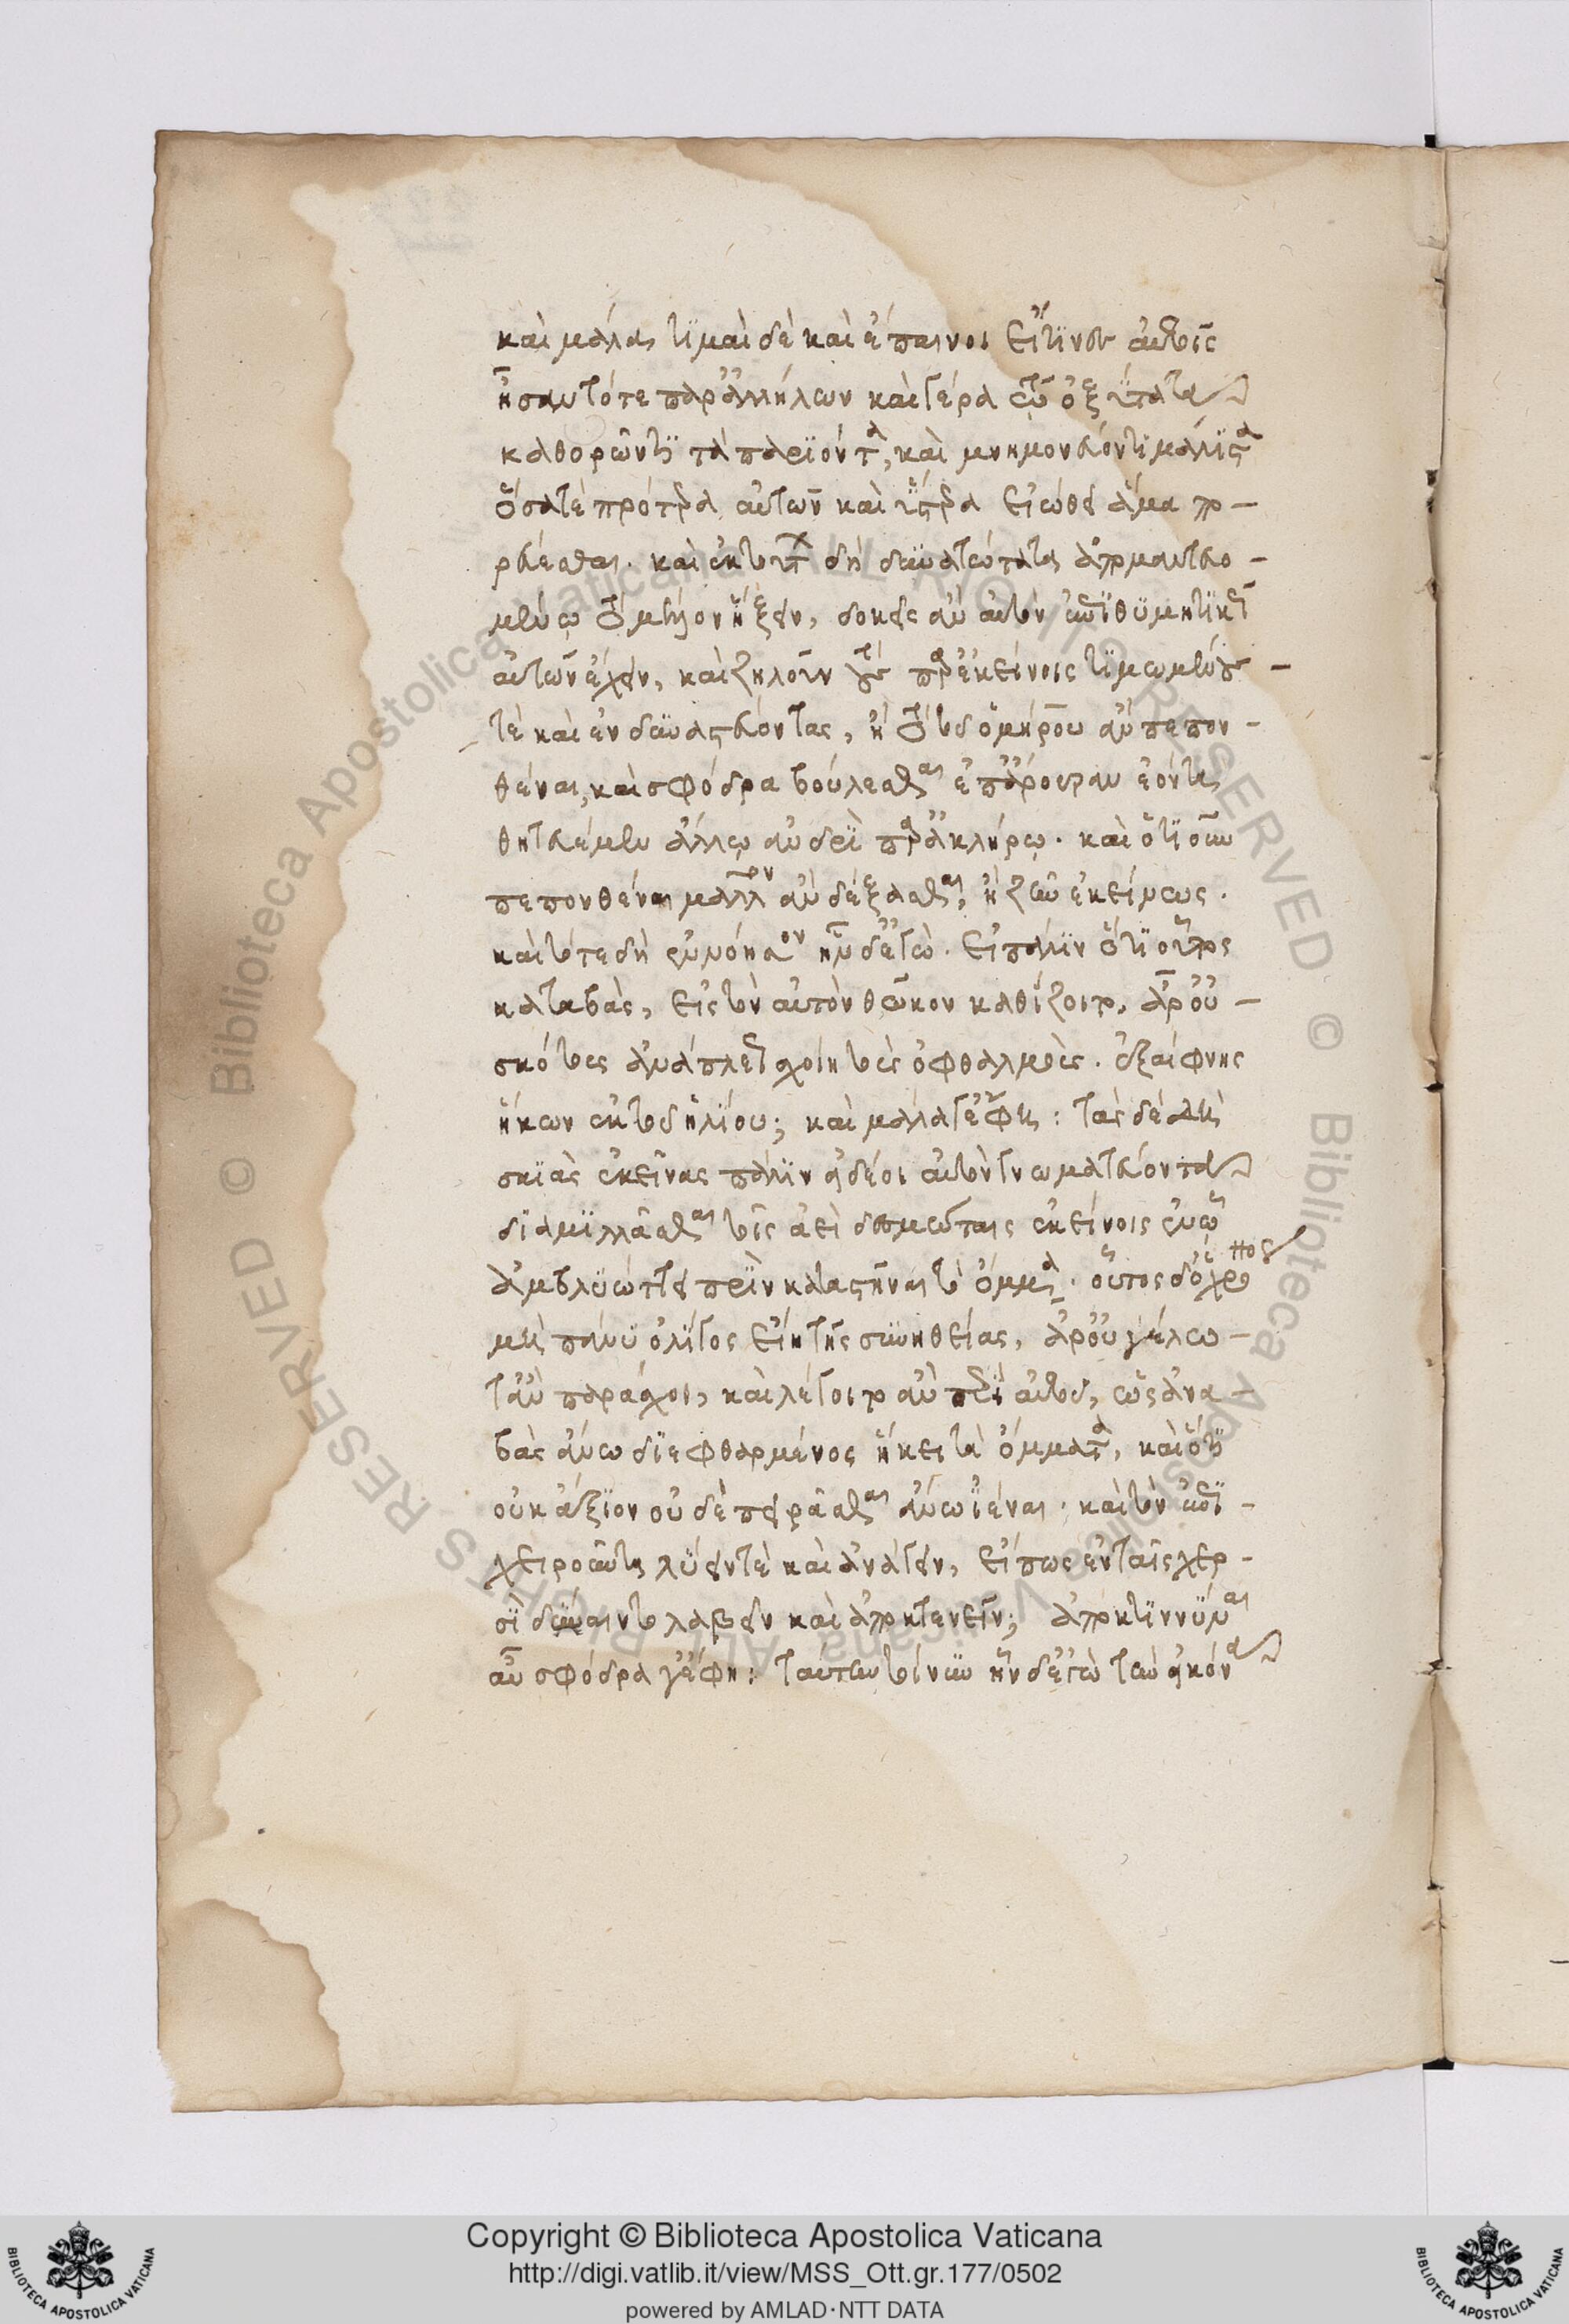 καὶ μάλα, τιμαὶ δὲ καὶ ἔπαινοι εἴ τινες αὐτοῖς
ἦσαν τότε παρ' ἀλλήλων καὶ γέρα τῷ ὀξύτατα
καθορῶντι τὰ παριόντα, καὶ μνημονεύοντι μάλιστα
ὅσα τὲ πρότερα αὐτῶν καὶ ὕστερα εἰώθει ἅμα πο-
ρεύεσθαι. καὶ ἐκ τούτων δὴ δυνατώτατα ἀπομαντευο-
μένῳ τὸ μέλλον ἥξειν, δοκεῖς ἂν αὐτὸν ἐπιθυμητικῶς
αὐτῶν ἔχειν, καὶ ζηλοῦν τοὺς παρ' ἐκείνοις τιμωμένους
τὲ καὶ ἐνδυναστεύοντας, ἢ τὸ τοῦ ὁμήρου ἂν πεπον-
θέναι, καὶ σφόδρα βούλεσθαι ἐπάρουραν ἐόντα
θητευέμεν ἄλλῳ ἀνδρὶ παρ' ἀκλήρῳ. καὶ ὁτιοῦν
πεπονθέναι μᾶλλον ἂν δέξασθαι, ἢ ζῆν ἐκείνως.
καὶ τότε δὴ ἐννόησον ἦν δ' ἐγώ. εἰ πάλιν ὅτι οὗτος
καταβὰς, εἰς τὸν αὐτὸν θῶκον καθίζοιτο, ἆρ' οὐ
σκότους ἀνάπλεως σχοίη τοὺς ὀφθαλμοὺς. ἐξαίφνης
ἥκων ἐκ τοῦ ἡλίου; καὶ μάλα γ' ἔφη: τὰς δὲ δὴ
σκιὰς ἐκείνας πάλιν εἰ δέοι αὐτὸν γνωματεύοντα
διαμιλλᾶσθαι τοῖς ἀεὶ δεσμώταις ἐκείνοις ἐν ᾧ
ἀμβλυώττει πρὶν καταστῆναι τὰ ὄμματα. οὗτος δ' ὁ χρόνος
μὴ πάνυ ὀλίγος εἴη τῆς συνηθείας, ἆρ' οὐ γέλω-
τ' ἂν παράσχοι, καὶ λέγοιτο ἂν περὶ αὐτοῦ, ὡς ἀνα-
βὰς ἄνω διεφθαρμένος ἥκει τὰ ὄμματα, καὶ ὅτι
οὐκ ἄξιον οὐδὲ πειρᾶσθαι ἄνω ἰέναι. καὶ τὸν ἐπι-
χειροῦντα λύειν τὲ καὶ ἀνάγειν, εἴ πως ἐν ταῖς χερ-
σὶ δύναιντο λαβεῖν καὶ ἀποκτενεῖν; ἀποκτιννύναι
ἂν σφόδρα γ' ἔφη: ταύτην τοίνυν ἦν δ' ἐγὼ τὴν εἰκόνα
Copyright © Biblioteca Apostolica Vaticana
http://digi.vatlib.it/view/MSS_Ott.gr.177/0502
powered by AMLAD·NTT DATA